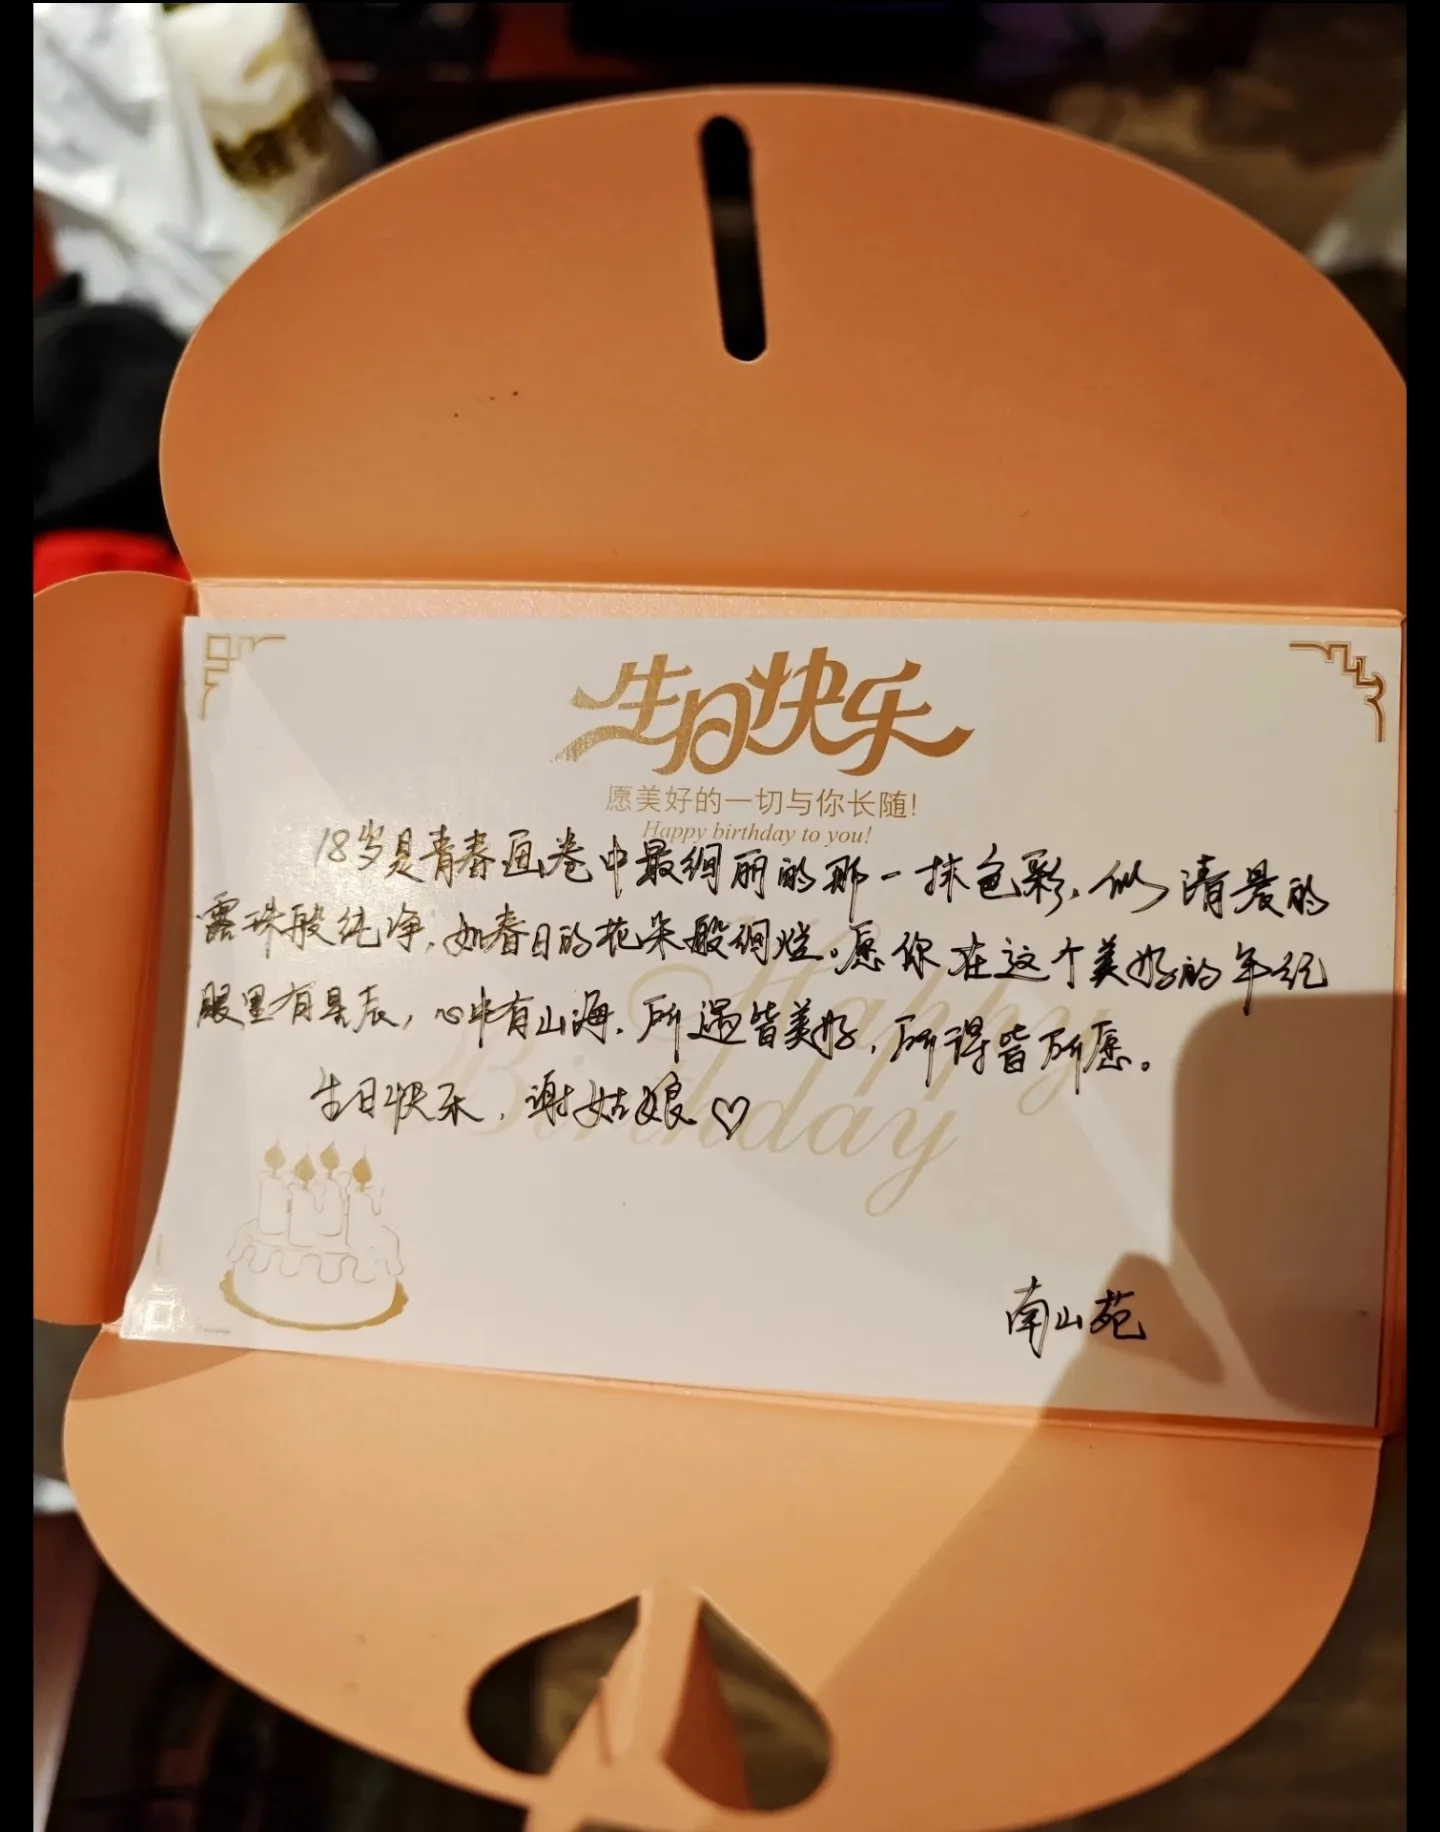 生日快乐
愿美好的一切与你长随!
Happy birthday to you!
18岁是青春画卷中最绚丽的那一抹色彩,似清晨的
露珠般纯净,如春日的花朵般绚烂。愿你在这个美好的年纪
眼里有星辰,心中有山海,所遇皆美好,所得皆所愿。
生日快乐,谢姑娘♡
Happy
Birthday
南山苑